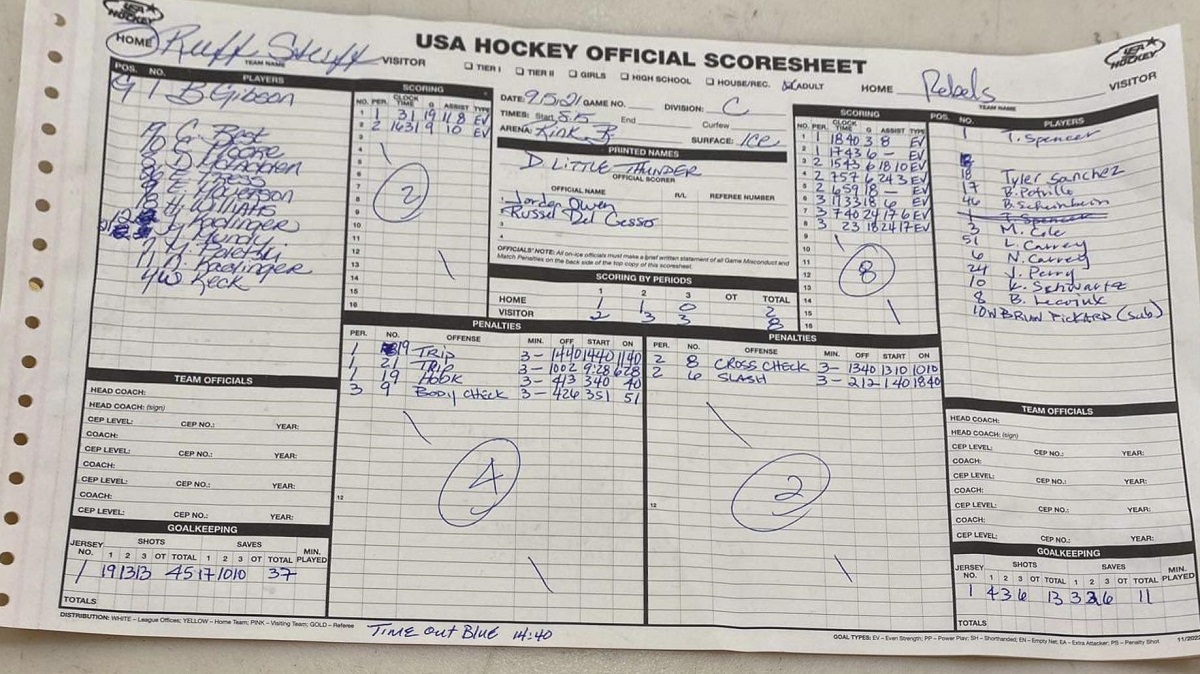 USA HOCKEY
USA HOCKEY OFFICIAL SCORESHEET
USA HOCKEY
HOME Ruff Stuff VISITOR
TEAM NAME
TIER I TIER II GIRLS HIGH SCHOOL HOUSE/REC. ADULT
HOME Rebels VISITOR
TEAM NAME
POS. NO. PLAYERS
G 1 B Gibson
19 G. Best
Roedinger
Keck
SCORING
NO. PER. CLOCK TIME G ASSIST TYPE
1 1 31 19 11 8 EV
2 2 1631 9 10 EV
3
4
5
6
7
8
9
10
11
12
13
14
15
16
2
DATE: 9.5.21 GAME NO. DIVISION: C
TIMES: Start 8:15 End Curfew
ARENA: Rink B SURFACE: Ice
PRINTED NAMES
D LITTLE THUNDER
OFFICIAL SCORER
OFFICIAL NAME R/L REFEREE NUMBER
1 Jorden Owen
2 Russel Del Gesso
3
4
OFFICIALS' NOTE: All on-ice officials must make a brief written statement of all Game Misconduct and
Match Penalties on the back side of the top copy of this scoresheet.
SCORING BY PERIODS
1 2 3 OT TOTAL
HOME 1 1 0 2
VISITOR 2 3 3 8
SCORING
NO. PER. CLOCK TIME G ASSIST TYPE
1 1 1840 3 8 EV
2 1 1743 6 – EV
3 2 1543 6 18 10 EV
4 2 757 6 24 3 EV
5 2 659 18 – EV
6 3 1733 18 6 EV
7 3 740 24 17 6 EV
8 3 23 18 24 17 EV
9
10
11
12
13
14
15
16
8
POS. NO. PLAYERS
1 T. Spencer
18 Tyler Sanchez
17 B. Potville
46 B. Scheinbein
1 T. Spencer
3 M. Cole
51 L. Carrey
6 N. Carrey
24 J. Perry
10 K. Schwartz
8 B. Learink
10W BRUN PICKARD (Sub)
PENALTIES
PER. NO. OFFENSE MIN. OFF START ON
1 19 TRIP 3 – 1440 1440 1140
1 21 TRIP 3 – 1002 9:28 628
1 19 HOOK 3 – 413 340 40
3 9 BODY CHECK 3 – 426 351 51
12
4
PENALTIES
PER. NO. OFFENSE MIN. OFF START ON
2 8 CROSS CHECK 3 – 1340 1310 1010
2 6 SLASH 3 – 212 140 1840
12
2
TEAM OFFICIALS
HEAD COACH:
HEAD COACH: (sign)
CEP LEVEL: CEP NO.: YEAR:
COACH:
CEP LEVEL: CEP NO.: YEAR:
COACH:
CEP LEVEL: CEP NO.: YEAR:
COACH:
CEP LEVEL: CEP NO.: YEAR:
GOALKEEPING
JERSEY NO. SHOTS 1 2 3 OT TOTAL SAVES 1 2 3 OT TOTAL MIN. PLAYED
1 19 13 13 45 17 10 10 37
TOTALS
TEAM OFFICIALS
HEAD COACH:
HEAD COACH: (sign)
CEP LEVEL: CEP NO.: YEAR:
COACH:
CEP LEVEL: CEP NO.: YEAR:
COACH:
CEP LEVEL: CEP NO.: YEAR:
COACH:
CEP LEVEL: CEP NO.: YEAR:
GOALKEEPING
JERSEY NO. SHOTS 1 2 3 OT TOTAL SAVES 1 2 3 OT TOTAL MIN. PLAYED
1 4 3 6 13 3 2 6 11
TOTALS
DISTRIBUTION: WHITE – League Offices; YELLOW – Home Team; PINK – Visiting Team; GOLD – Referee
TIME OUT BLUE 14:40
GOAL TYPES: EV – Even Strength; PP – Power Play; SH – Shorthanded; EN – Empty Net; EA – Extra Attacker; PS – Penalty Shot 11/2022